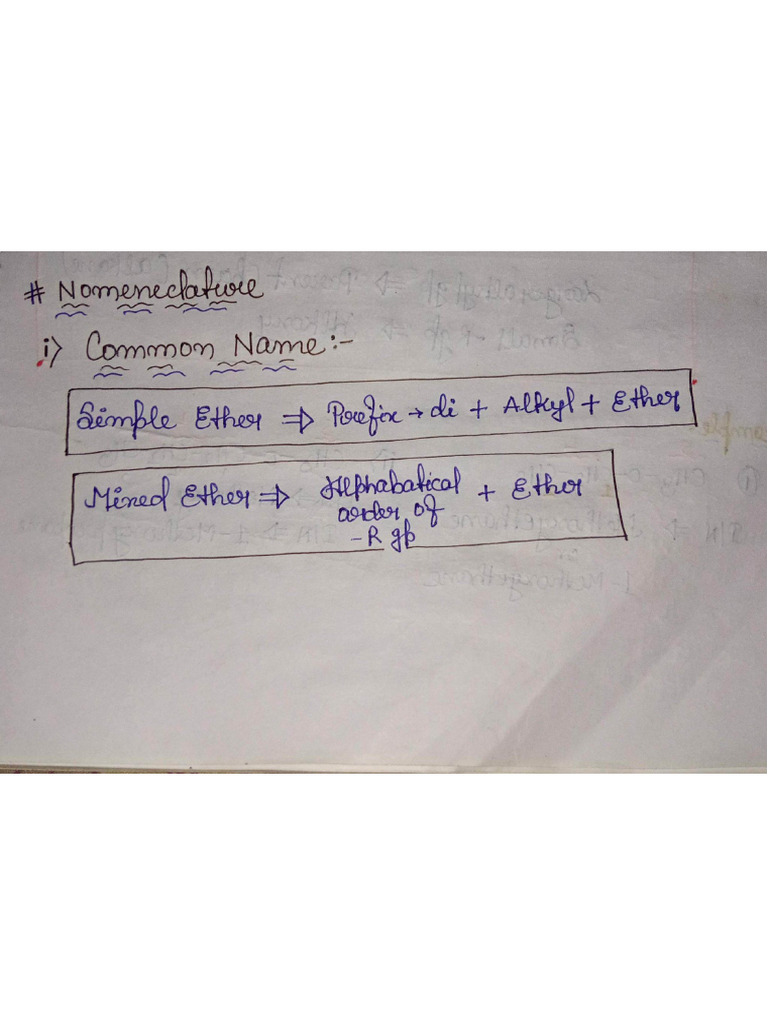 # Nomeneclature
i) Common Name:-
Simple Ether ⇒ Prefix → di + Alkyl + Ether
Mixed Ether ⇒ Alphabatical + Ether
order of
-R gp